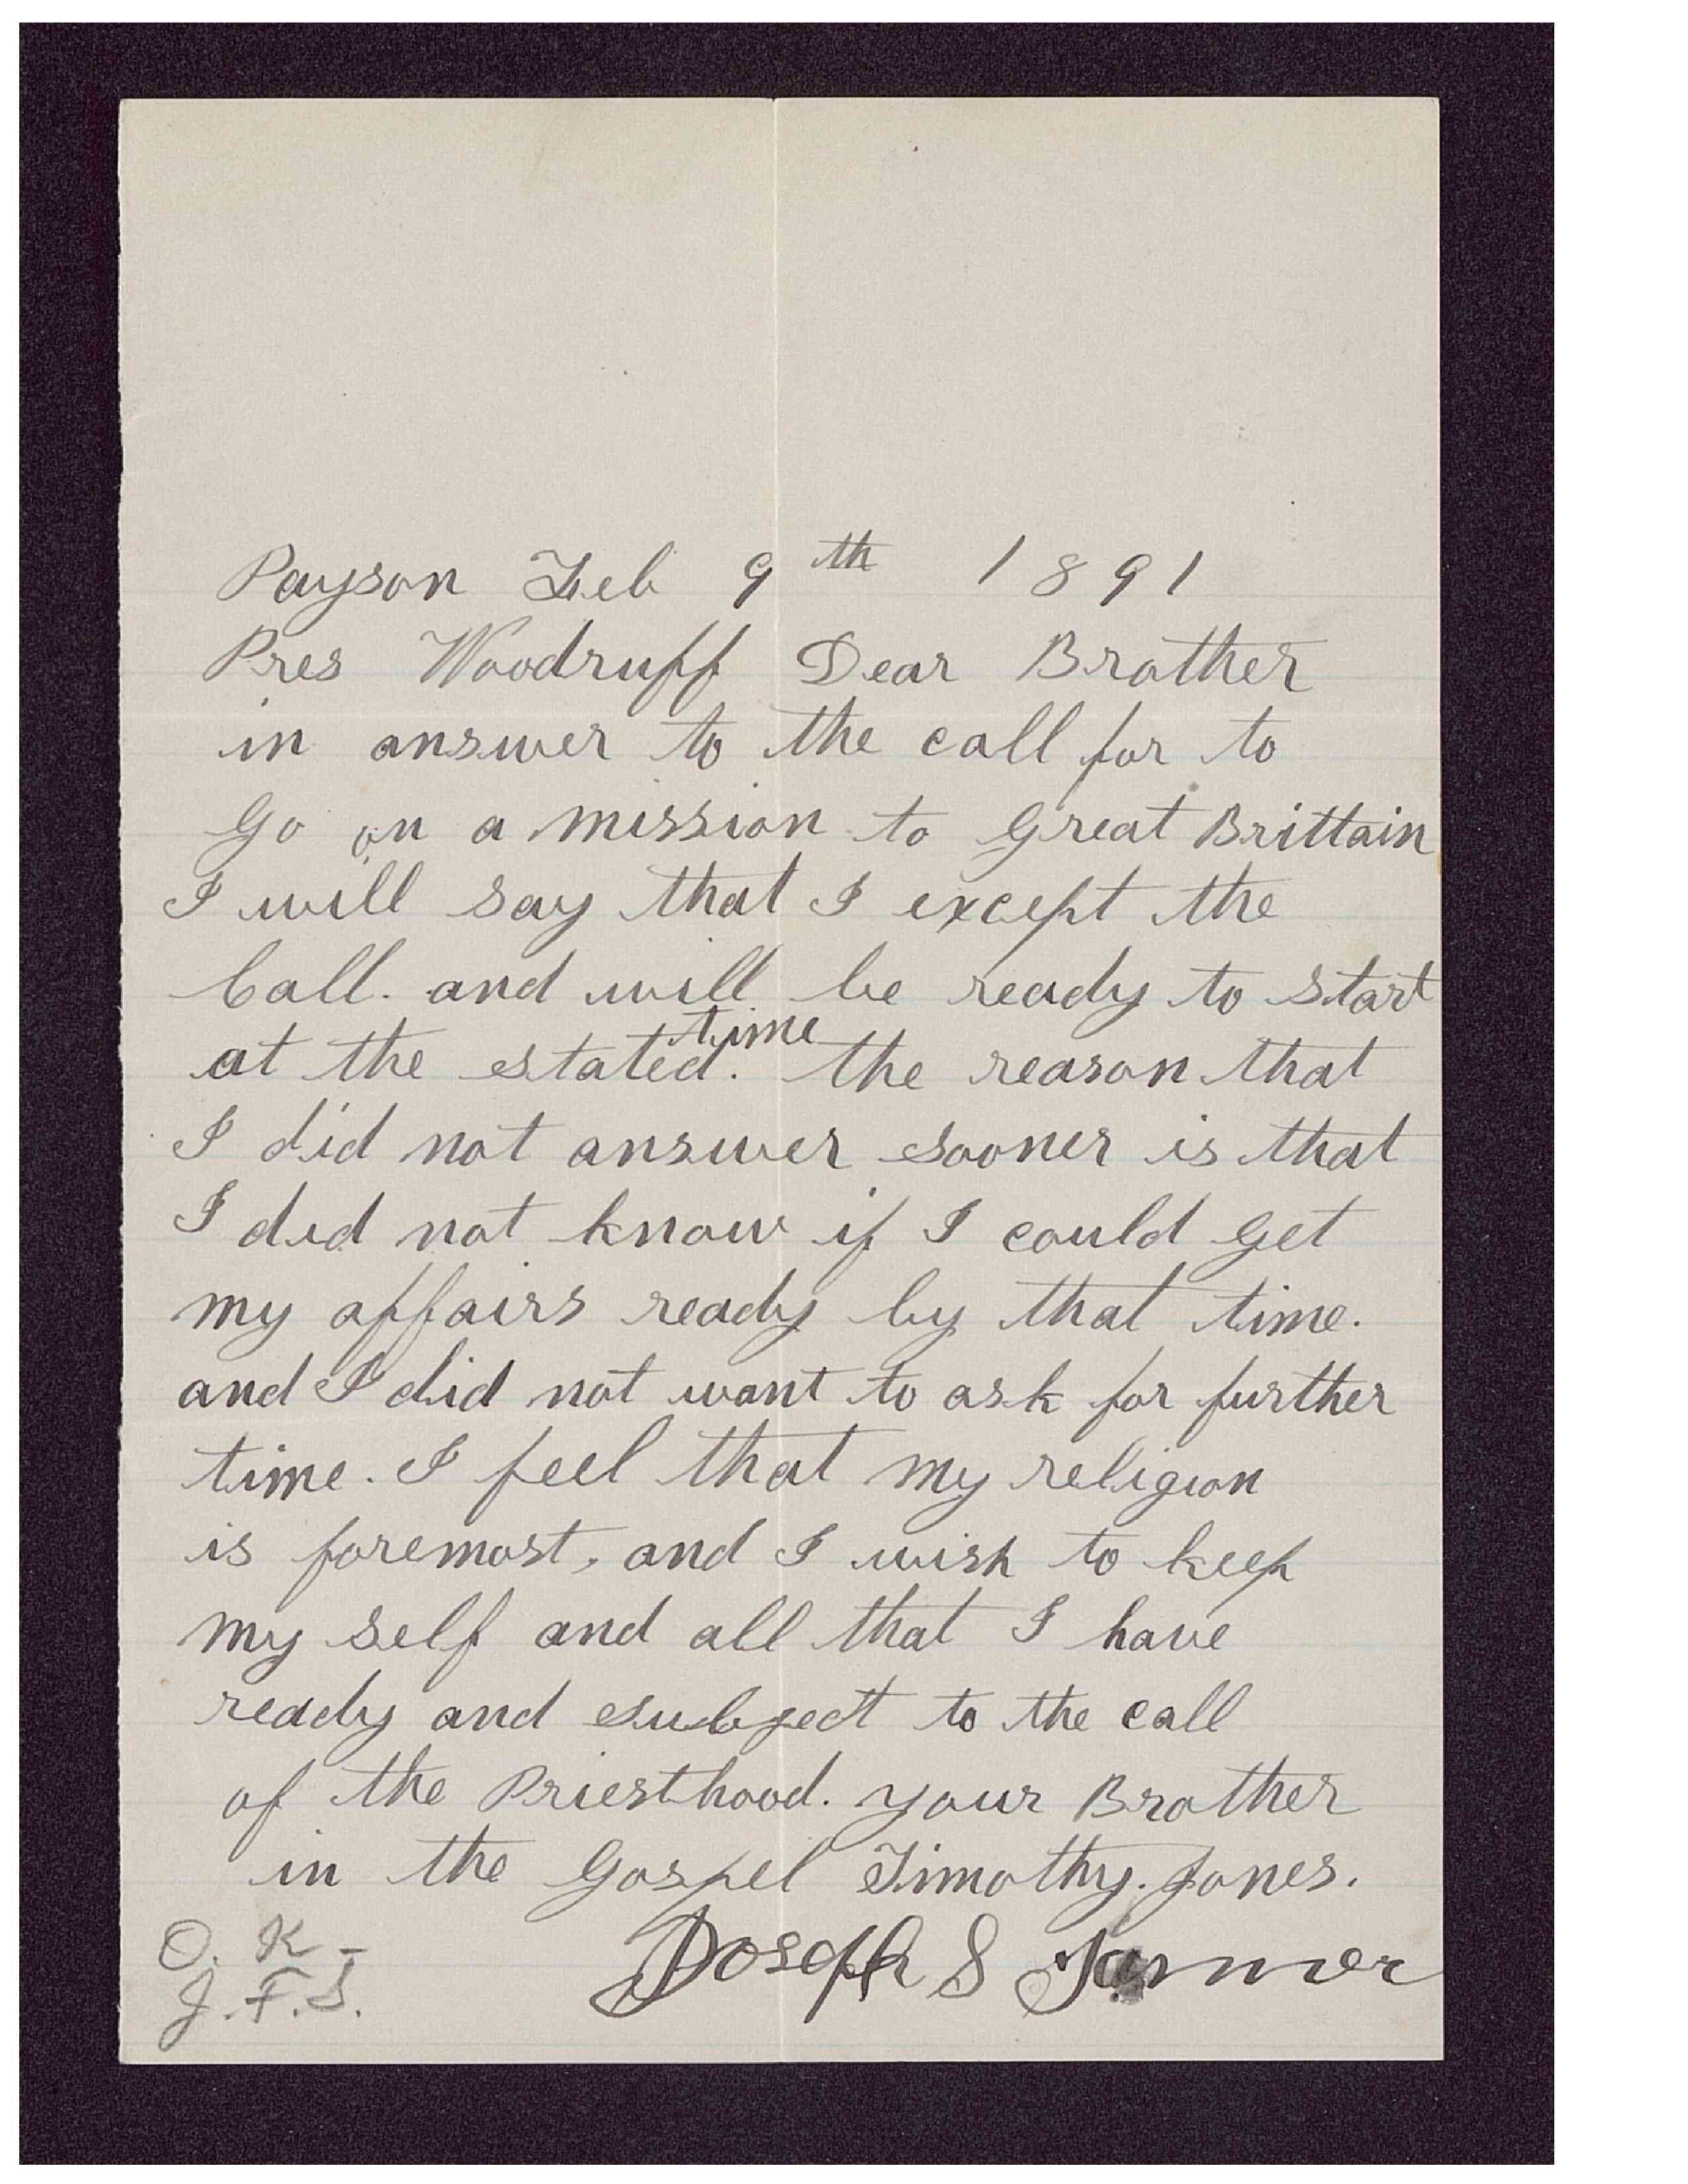 Payson Feb 9th 1891
Pres Woodruff Dear Brother
in answer to the call for to
Go on a mission to Great Brittain
I will say that I except the
Call. and will be ready to start
time
at the stated. the reason that
I did not answer sooner is that
I did not know if I could Get
my affairs ready by that time.
and I did not want to ask for further
time. I feel that my religion
is foremost, and I wish to keep
my self and all that I have
ready and subject to the call
of the Priesthood. your Brother
in the Gospel Timothy. Jones.
Joseph S Tanner
O. K -
J. F. S.